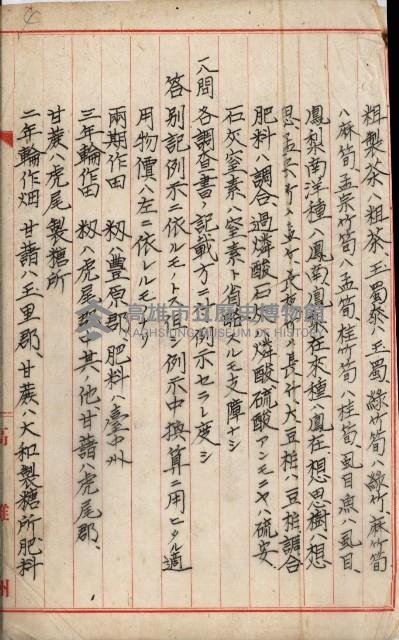 粗製茶ハ粗茶、玉蜀黍ハ玉蜀、緑竹筍ハ緑竹、麻竹筍
ハ麻筍、孟宗竹筍ハ孟筍、桂竹筍ハ桂筍、虱目魚ハ虱目、
鳳梨南洋種ハ鳳南、鳳梨在來種ハ鳳在、想思樹ハ想
思、孟宗竹ハ孟竹、長枝竹ハ長竹、大豆粕ハ豆粕、調合
肥料ハ調合、過燐酸石灰ハ燐酸、硫酸アンモニヤハ硫安、
石灰窒素ハ窒素ト省略スルモ支障ナシ
八問 各調査書ノ記載方ニ付例示セラレ度シ
答 別記例示ニ依ルモノトス但シ例示中換算ニ用ヒタル適
用物價ハ左ニ依レルモノナリ
兩期作田 籾ハ豊原郡、肥料ハ臺中州
三年輪作田 籾ハ虎尾郡中其ノ他甘藷ハ虎尾郡、
甘蔗ハ虎尾製糖所
二年輪作畑 甘藷ハ玉里郡、甘蔗ハ大和製糖所肥料
高雄州
高雄市立歷史博物館
KAOHSIUNG MUSEUM OF HISTORY